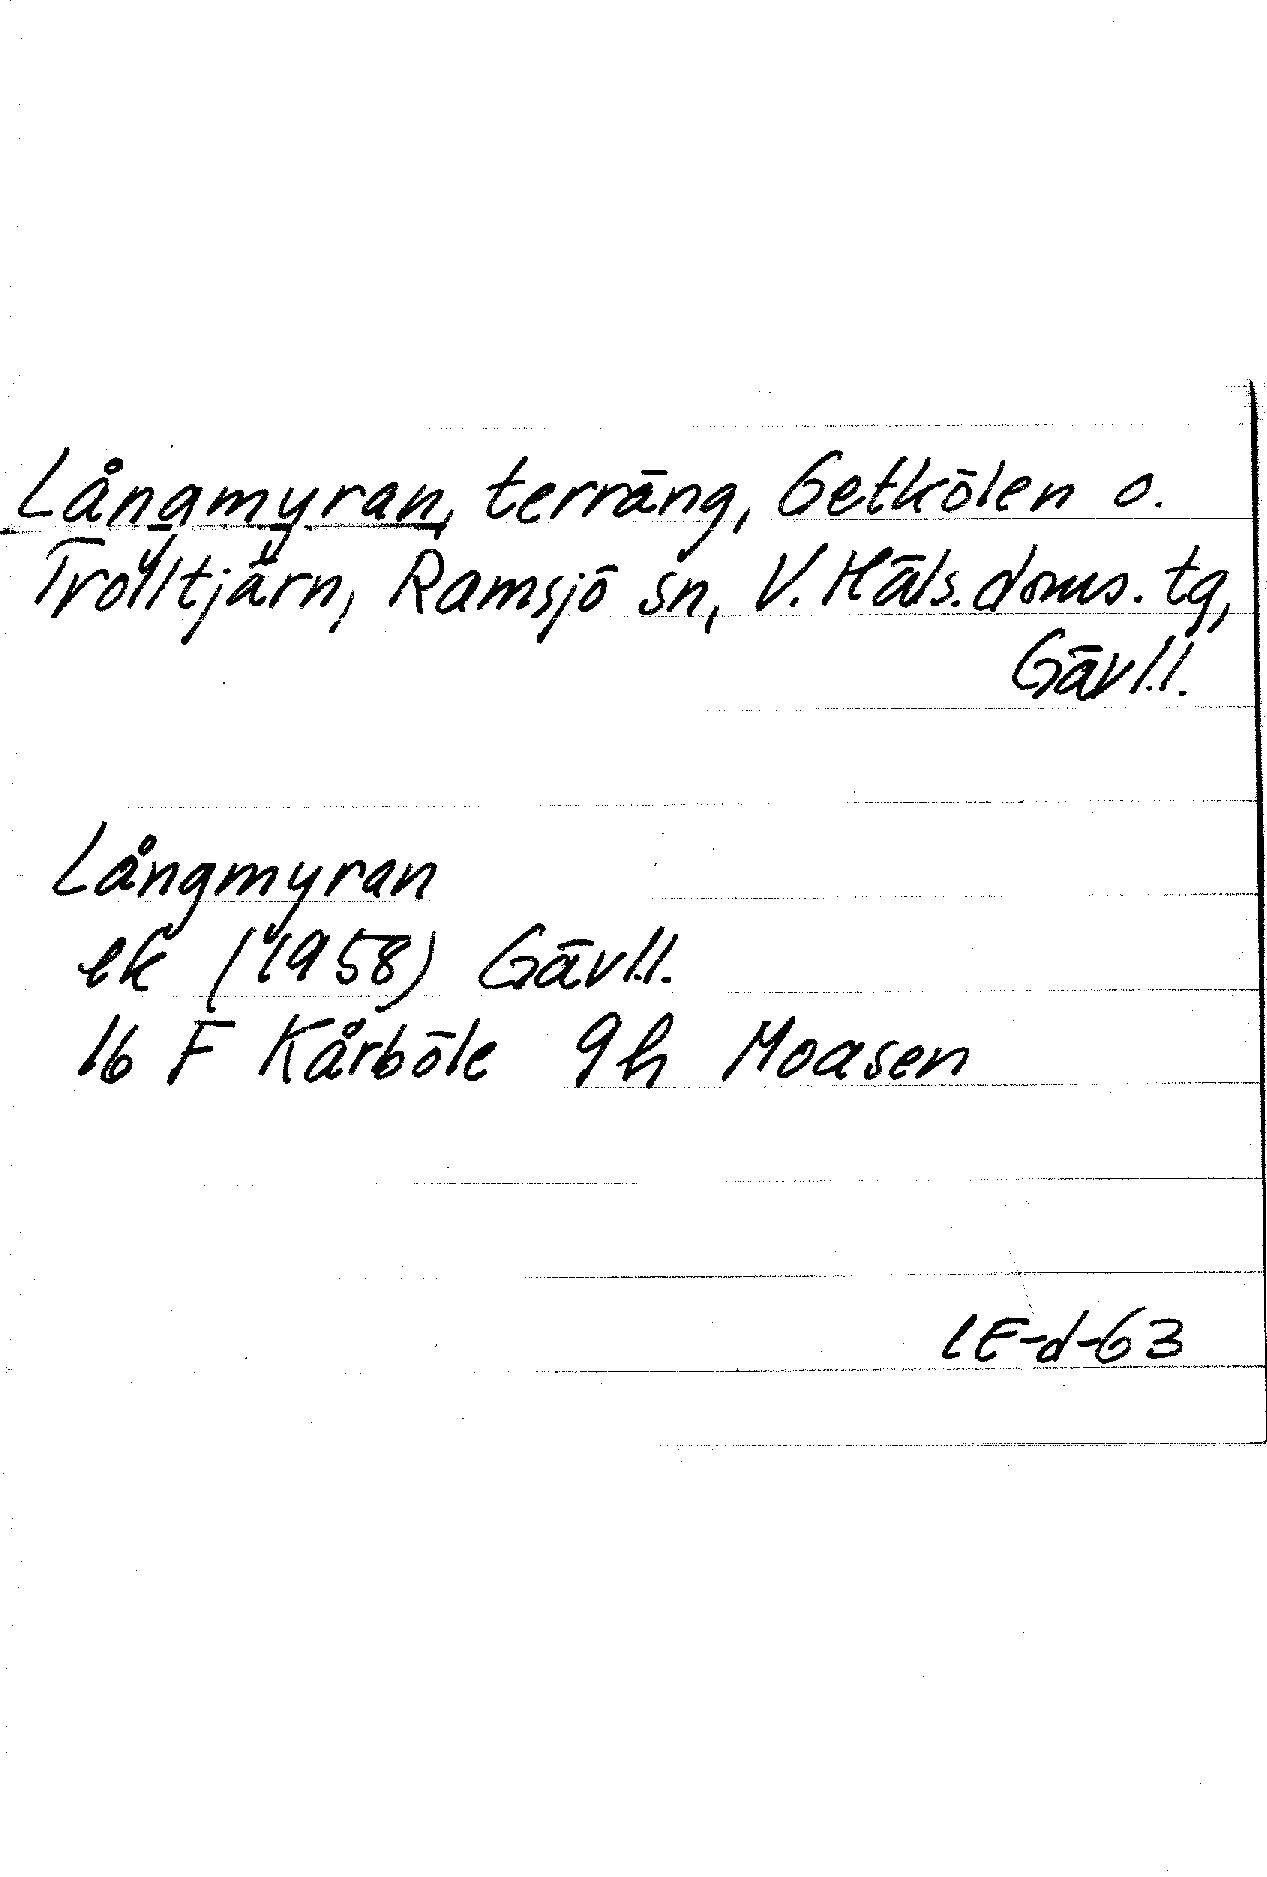 Långmyran, terräng, Getkölen o.
Trolltjärn, Ramsjö sn, V. Häls. doms. tg,
Gävl.l.
Långmyran
ek (1958) Gävl.l.
16 F Kårböle 9h Moasen
LE-d-63